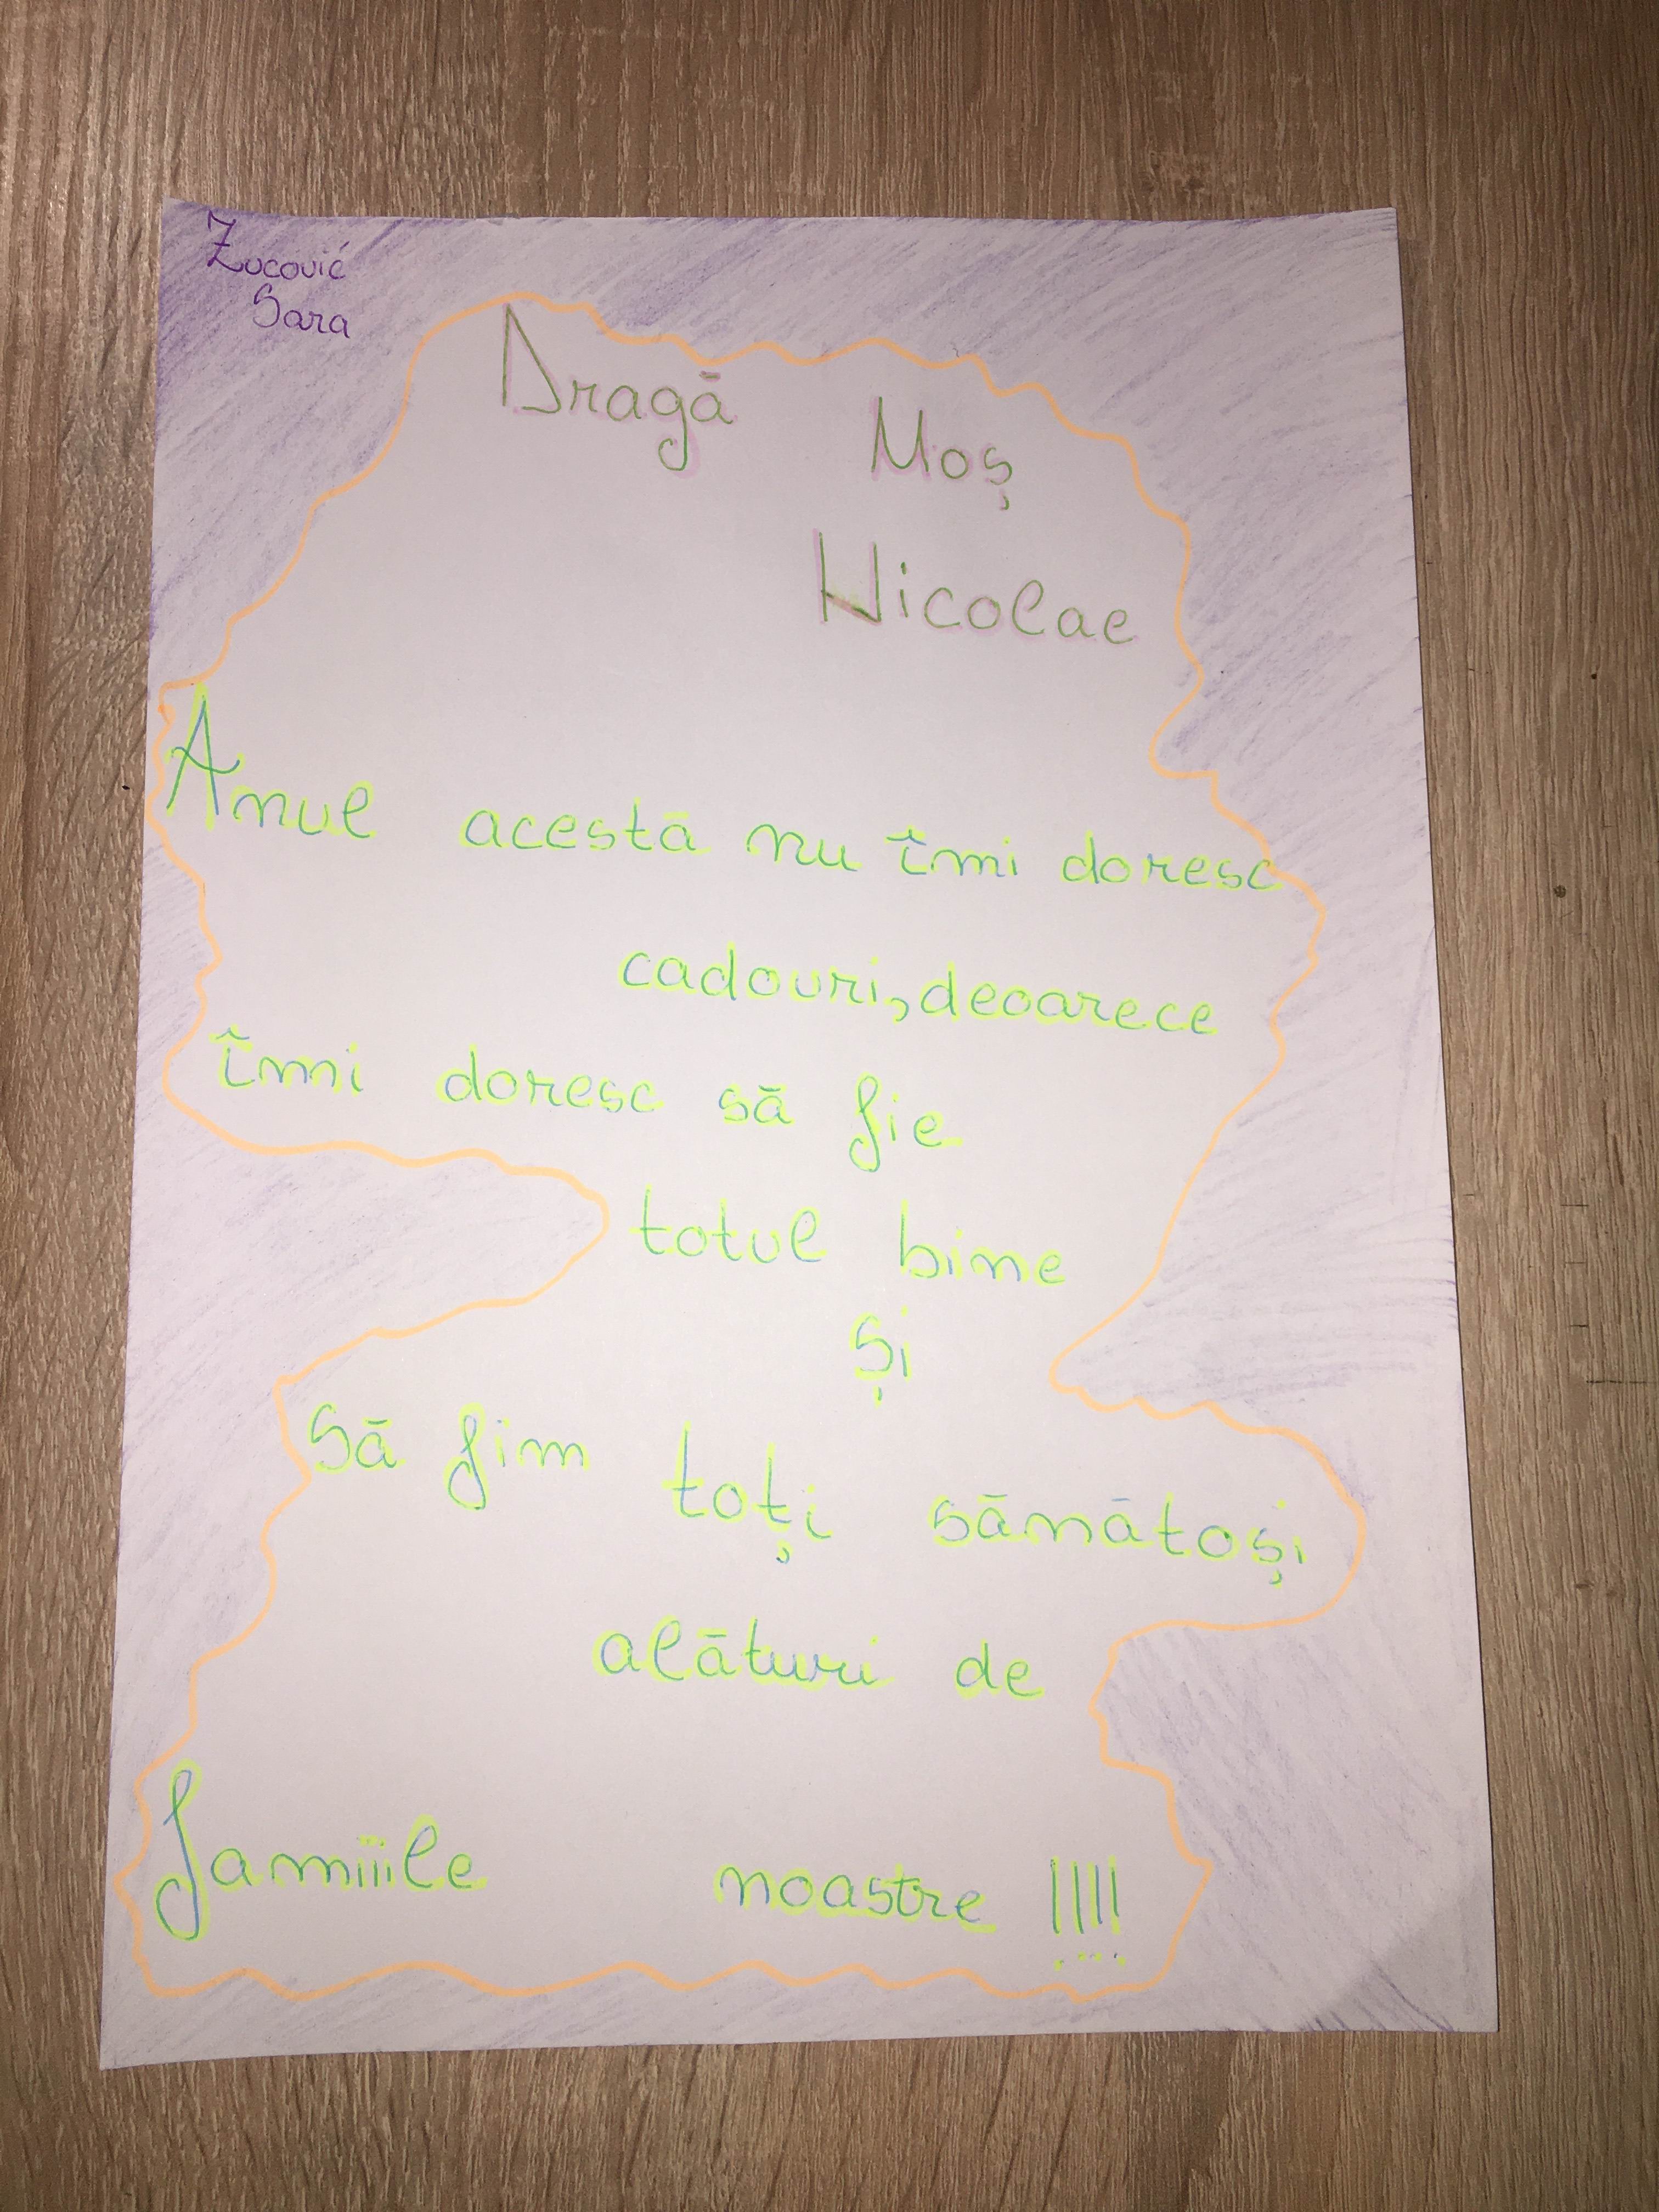 Zucović
Sara
Dragă Moș
Nicolae
Anul acestă nu îmi doresc
cadouri, deoarece
îmi doresc să fie
totul bine
și
să fim toți sănătoși
alături de
famiiile noastre !!!!